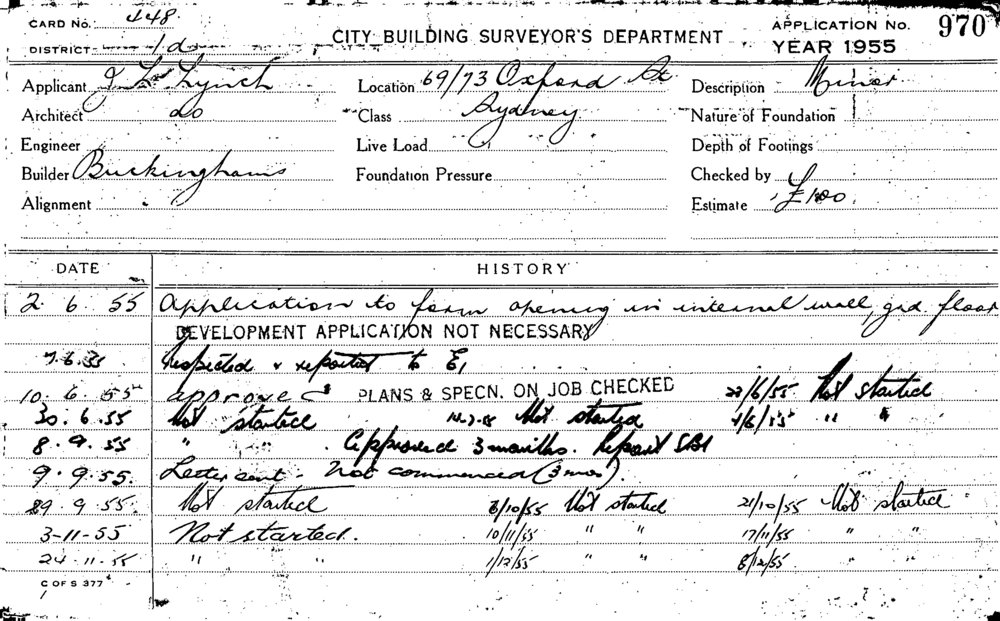 CARD No. 448
DISTRICT 1d
CITY BUILDING SURVEYOR'S DEPARTMENT
APPLICATION No. 970
YEAR 1955
Applicant J L Lynch Location 69/73 Oxford St Description Minor
Architect do Class Sydney Nature of Foundation
Engineer Live Load Depth of Footings
Builder Buckinghams Foundation Pressure Checked by
Alignment Estimate £100
DATE HISTORY
2. 6. 55 Application to form opening in internal wall, grd. floor
DEVELOPMENT APPLICATION NOT NECESSARY
7.6.55 Inspected & reported to E,
10. 6. 55 approved PLANS & SPECN. ON JOB CHECKED 23/6/55 Not started
30. 6. 55 Not started 14-7-55 Not started 4/8/55 " "
8. 9. 55 " " Approved 3 months. Report
9. 9. 55. Letter sent. Not commenced (3 mos).
29. 9. 55 Not started 6/10/55 Not started 21/10/55 Not started
3-11-55 Not started. 10/11/55 " " 17/11/55 " "
24. 11. 55 " " 1/12/55 " " 8/12/55 " "
C OF S 377